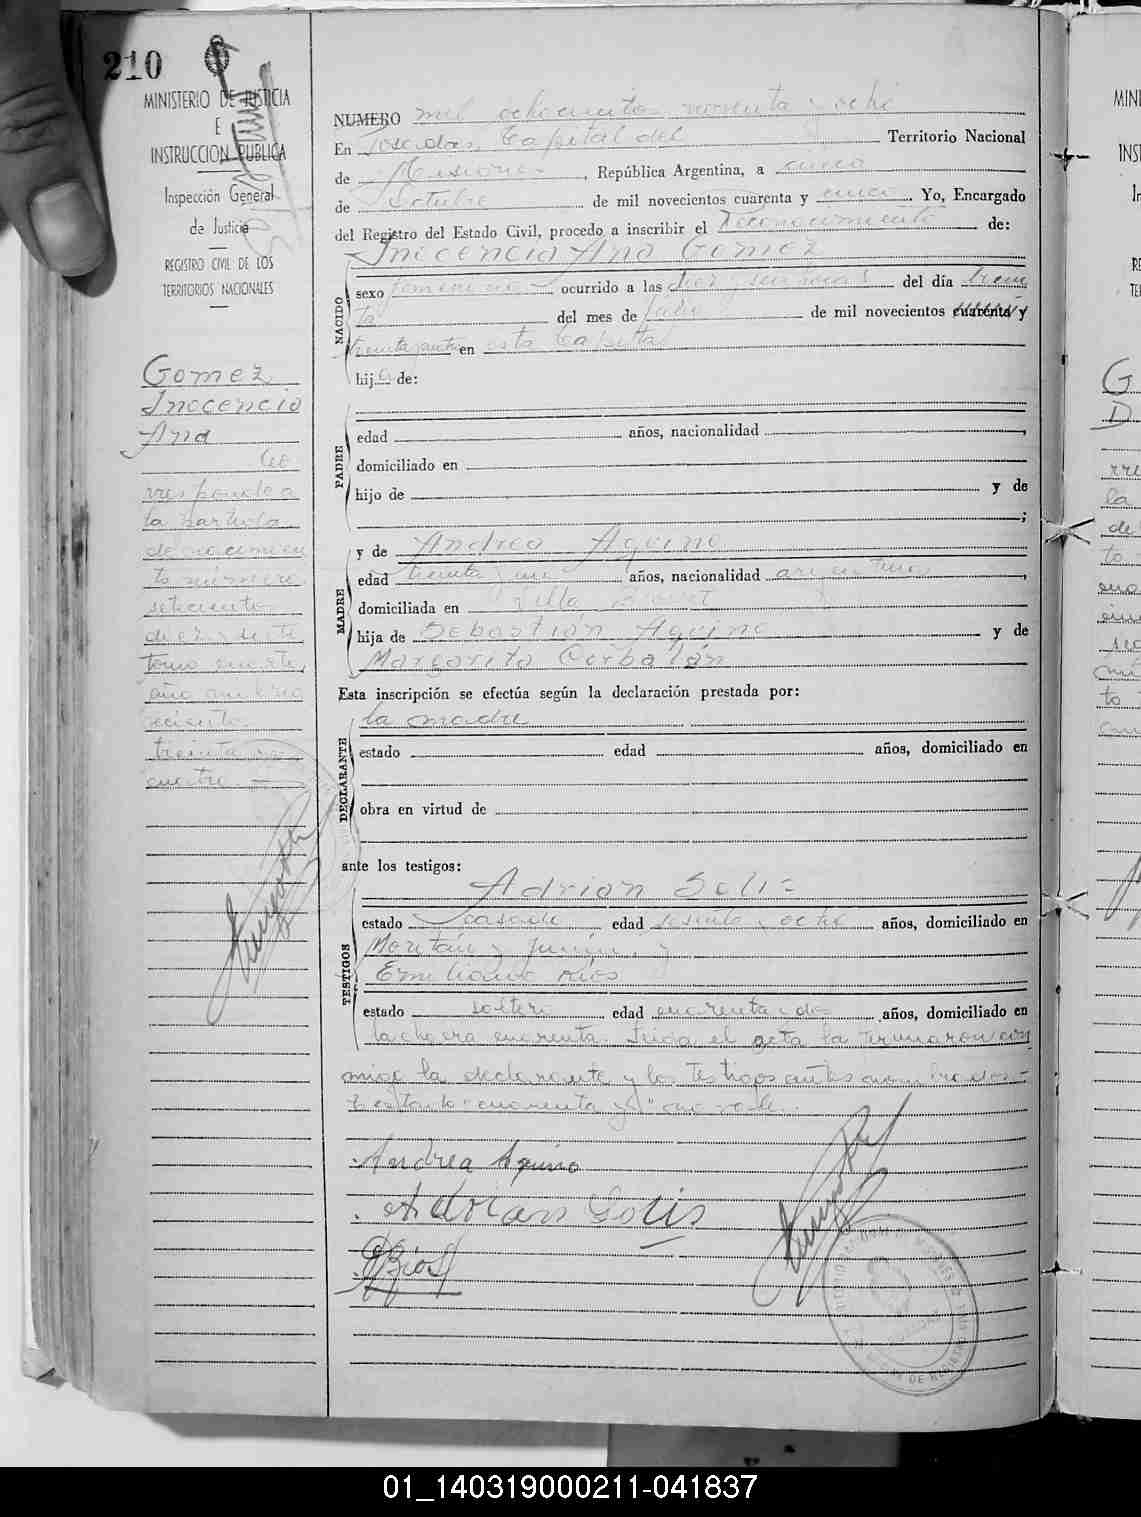 210
MINISTERIO DE JUSTICIA
E
INSTRUCCION PUBLICA
Inspección General
de Justicia
REGISTRO CIVIL DE LOS
TERRITORIOS NACIONALES
Gomez
Inocencia
Ana
Co
rresponde a
la partida
de nacimien
to número
setecientos
diez y siete
tomo
año mil no
vecientos
treinta y
cuatro
NUMERO mil ochocientos noventa y ocho
En Posadas, Capital del Territorio Nacional
de Misiones, República Argentina, a cinco
de Octubre de mil novecientos cuarenta y cinco. Yo, Encargado
del Registro del Estado Civil, procedo a inscribir el Reconocimiento de:
Inocencia Ana Gomez
NACIDO
sexo femenino ocurrido a las diez y seis horas del día trein
ta del mes de Julio de mil novecientos cuarenta y
treinta y cuatro en esta Capital
hija de:
PADRE
edad años, nacionalidad ,
domiciliado en
hijo de y de
;
MADRE
y de Andrea Aquino
edad treinta y un años, nacionalidad argentina,
domiciliada en Villa
hija de Sebastián Aquino y de
Margarita Cerbalán
Esta inscripción se efectúa según la declaración prestada por:
DECLARANTE
la madre
estado edad años, domiciliado en
obra en virtud de
ante los testigos:
TESTIGOS
Adrian Solis
estado casado edad sesenta y ocho años, domiciliado en
Moritán y Junín, y
Emiliano Rios
estado soltero edad cuarenta y dos años, domiciliado en
la chacra cuarenta. Leida el acta la firmaron con
migo la declarante y los testigos antes nombrados.-
Testado "cuarenta y" no vale.
Andrea Aquino
Adrian Solis
Rios
MINI
INST
In
RE
TE
G
D
rre
la
de
to
01_140319000211-041837